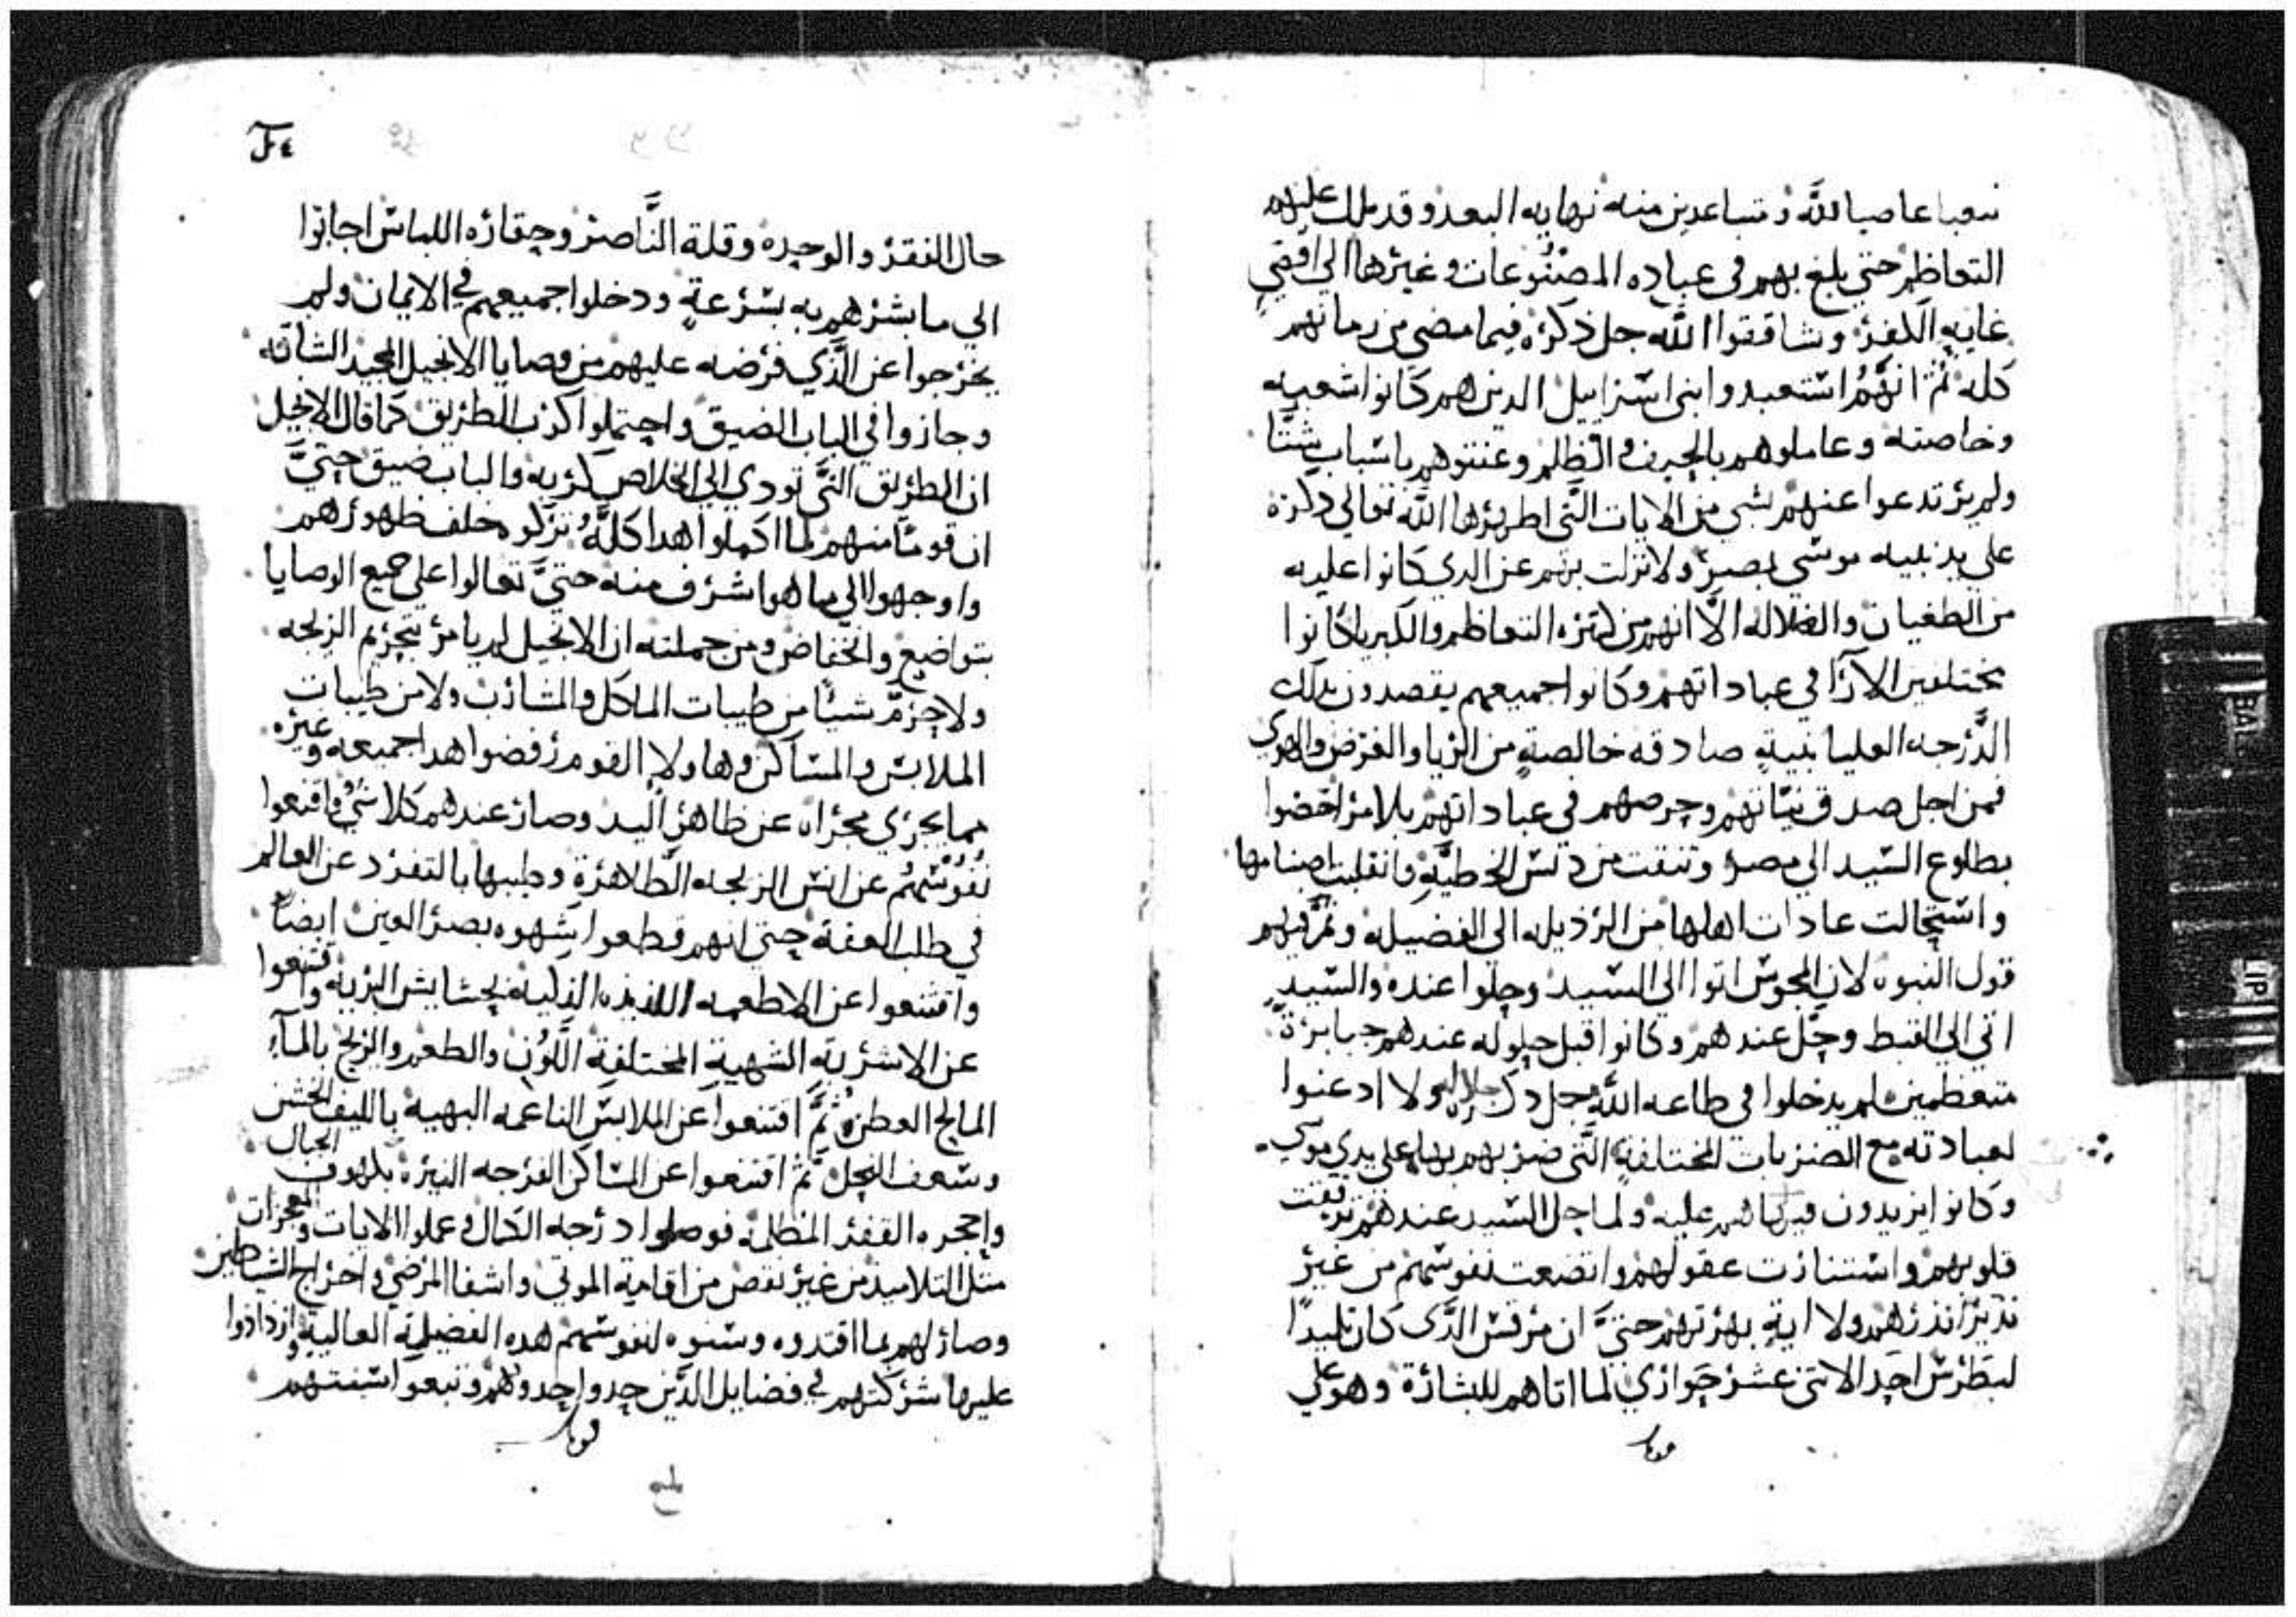 شعبا عاصيا لله ومتباعدين منه نهايه البعد وقد ملك عليهم
التعاظم حتى بلغ بهم في عباده المصنوعات وغيرها الي اقصي
غايه الكفر وشاققوا الله جل ذكره فيما مضي من زمانهم
كله ثم انهم استعبدوا بني اسراييل الدين هم كانوا شعبه
وخاصته وعاملوهم بالحيف والظلم وعنتوهم باسباب شتا
ولم يرتدعوا عنهم بشي من الايات التي اظهرها الله تعالي دكره
علي يد نبيه موسي بمصر ولا نزلت بهم عن الدي كانوا عليه
من الطغيان والضلاله الا انهم من كثره التعاظم والكبريا كانوا
مختلفين الارآ في عباداتهم وكانوا جميعهم يقصدون بدلك
الدرجه العليا بنية صادقه خالصة من الريا والغرض والهوي
فمن اجل صدق نياتهم وحرصهم في عباداتهم بلا مرا خضوا
بطلوع السيد الي مصر وتنقت من دنس الخطية وانقلبت اصنامها
واستحالت عادات اهلها من الرذيله الي الفضيله وتم فيهم
قول النبوه لان المجوس اتوا الي السيد وحلوا عنده والسيد
اتي الي القبط وحل عندهم وكانوا قبل حلوله عندهم جبابرة
متعظمين لم يدخلوا في طاعه الله جل جلاله ولا ادعنوا
لعبادته مع الضربات المختلفة التي ضربهم بها علي يدي موسي
وكانوا يزيدون فيما هم عليه ولما حل السيد عندهم
قلوبهم واستنارت عقولهم واتضعت نفوسهم من غير
نذير انذرهم ولا اية بهرتهم حتي ان مرقس الدي كان تلميدا
لبطرس احد الاتني عشر حواري لما اتاهم للبشارة وهو علي
حال الفقر والوحده وقلة الناصر وحقاره اللباس اجابوا
الي ما بشرهم به بسرعة ودخلوا جميعهم في الايمان ولم
يخرجوا عن الذي فرضه عليهم من وصايا الانجيل المجيد الشاقه
وجازوا في الباب الضيق واحتملوا كرب الطريق كما قال الانجيل
ان الطريق التي تودي الي الخلاص كربه والباب ضيق حتي
ان قوما منهم لما اكملوا هدا كله تركوه خلف ظهورهم
واوجهوا الي ما هو اشرف منه حتي تعالوا علي جميع الوصايا
بتواضع وانخفاض ومن جملته ان الانجيل لم يامر بتحريم الزيجه
ولا حرم شيا من طيبات الماكل والمشارب ولا من طيبات
الملابس والمساكن وهاولاٍ القوم رفضوا هدا جميعه وغيره
مما يجري مجراه عن ظاهر اليد وصار عندهم كلا شي واقنعوا
نفوسهم عن انس الزيجه الطاهرة وطيبها بالتفرد عن العالم
في طلب العفة حتي انهم قطعوا شهوه بصر العين ايضا
واقتنعوا عن الاطعمه اللذيذه بحشايش البريه واقتنعوا
عن الاشربه الشهية المختلفة اللون والطعم والريح بالمآ
المالح ثم اقتنعوا عن الملابس الناعمه البهية بالليف الخشن
وسعف النخل ثم اقتنعوا عن المساكن الفرجه النيره بكهوف الجبال
واجحره القفر المظلمة فوصلوا درجه الكمال وعملوا الايات والمعجزات
متل التلاميذ من غير نقص من اقامة الموتي واشفا المرضي واخراج الشياطين
وصار لهم بما اقتدوه وسنوه لنفوسهم هده الفضيلة العالية وازدادوا
عليها شركتهم في فضايل الذين حدوا حدوهم وتبعوا